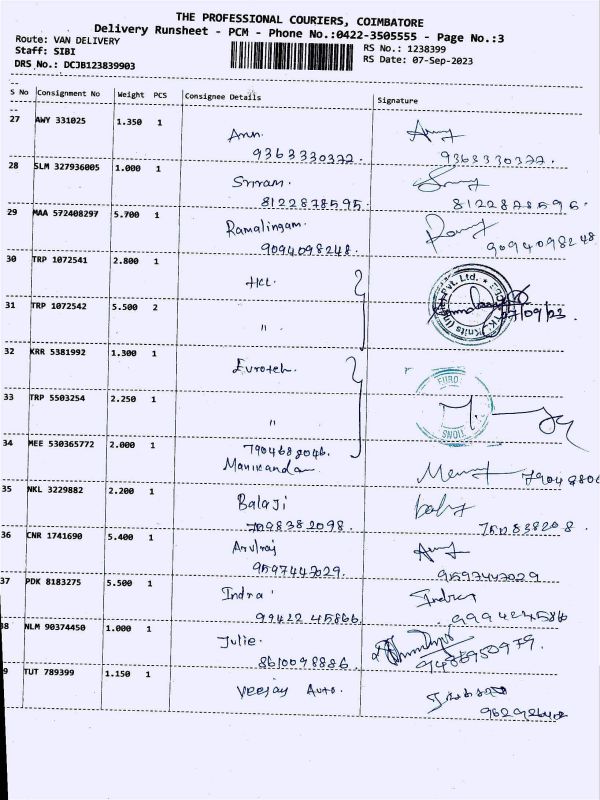 THE PROFESSIONAL COURIERS, COIMBATORE
Delivery Runsheet - PCM - Phone No.:0422-3505555 - Page No.:3
Route: VAN DELIVERY RS No.: 1238399
Staff: SIBI RS Date: 07-Sep-2023
DRS No.: DCJB123839903
S No Consignment No Weight PCS Consignee Details Signature
27 AWY 331025 1.350 1 Arun.
9363330377. 9363330377.
28 SLM 327936005 1.000 1 Sriram.
8122878595. 8122878595.
29 MAA 572408297 5.700 1 Ramalingam.
9094098248. 9094098248
30 TRP 1072541 2.800 1 HCL.
31 TRP 1072542 5.500 2 "
Knits (India) Pvt. Ltd.
07/09/23.
32 KRR 5381992 1.300 1 Eurotech.
33 TRP 5503254 2.250 1 "
EURO
34 MEE 530365772 2.000 1 7904688046.
Manikandan
35 NKL 3229882 2.200 1 Balaji
7098382098.
36 CNR 1741690 5.400 1 Arulraj
9597447029. 9597447029
37 PDK 8183275 5.500 1 Indra Indra
99422 45866.
38 NLM 90374450 1.000 1 Julie.
8610098886.
9 TUT 789399 1.150 1 Veejay Auto.